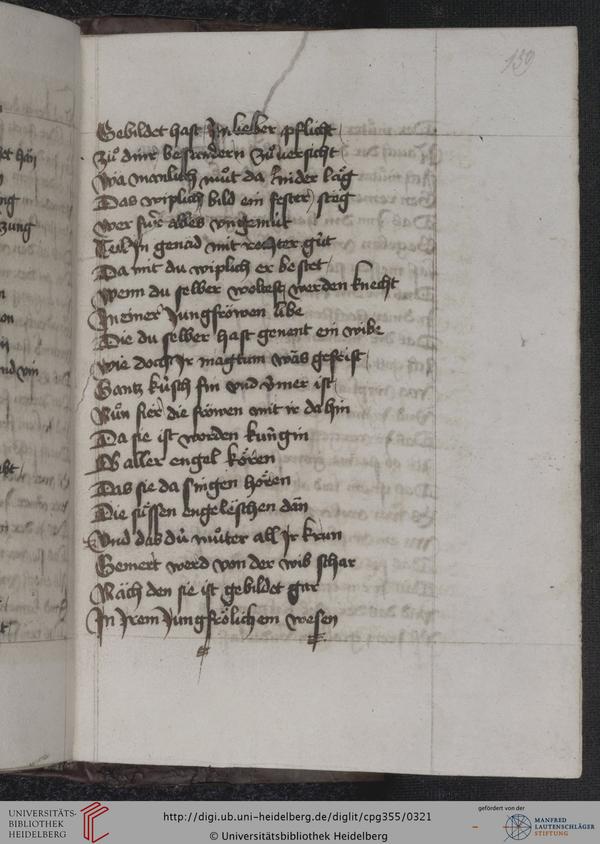 159
Gebildet hast In lieber pflicht
Zů diner besundern zů versicht
Wa manlich můt da nider lag
Das wiplich bild ein fester steg
Wer für alles vngemüt
Teil In genad mit rechter güt
Da mit du wiplich er bestet
Wenn du selber woltest werden knecht
In einer Jungfröwen libe
Die du selber hast genent ein wibe
Wie doch Ir magtum was gefrist
Gantz küsch sin vnd ymer ist
Nůn füer die fröwen mit ir da hin
Da sie ist worden küngin
Ob aller engel kören
Das sie da singen hören
Die süssen engelschen dän
Vnd das dů můter all Ir krun
Gemert werd von der wib schar
Näch den sie ist gebildet gar
In Irem Jungfrölichem wesen
UNIVERSITÄTS-
BIBLIOTHEK
HEIDELBERG
http://digi.ub.uni-heidelberg.de/diglit/cpg355/0321
© Universitätsbibliothek Heidelberg
gefördert von der
MANFRED
LAUTENSCHLÄGER
STIFTUNG